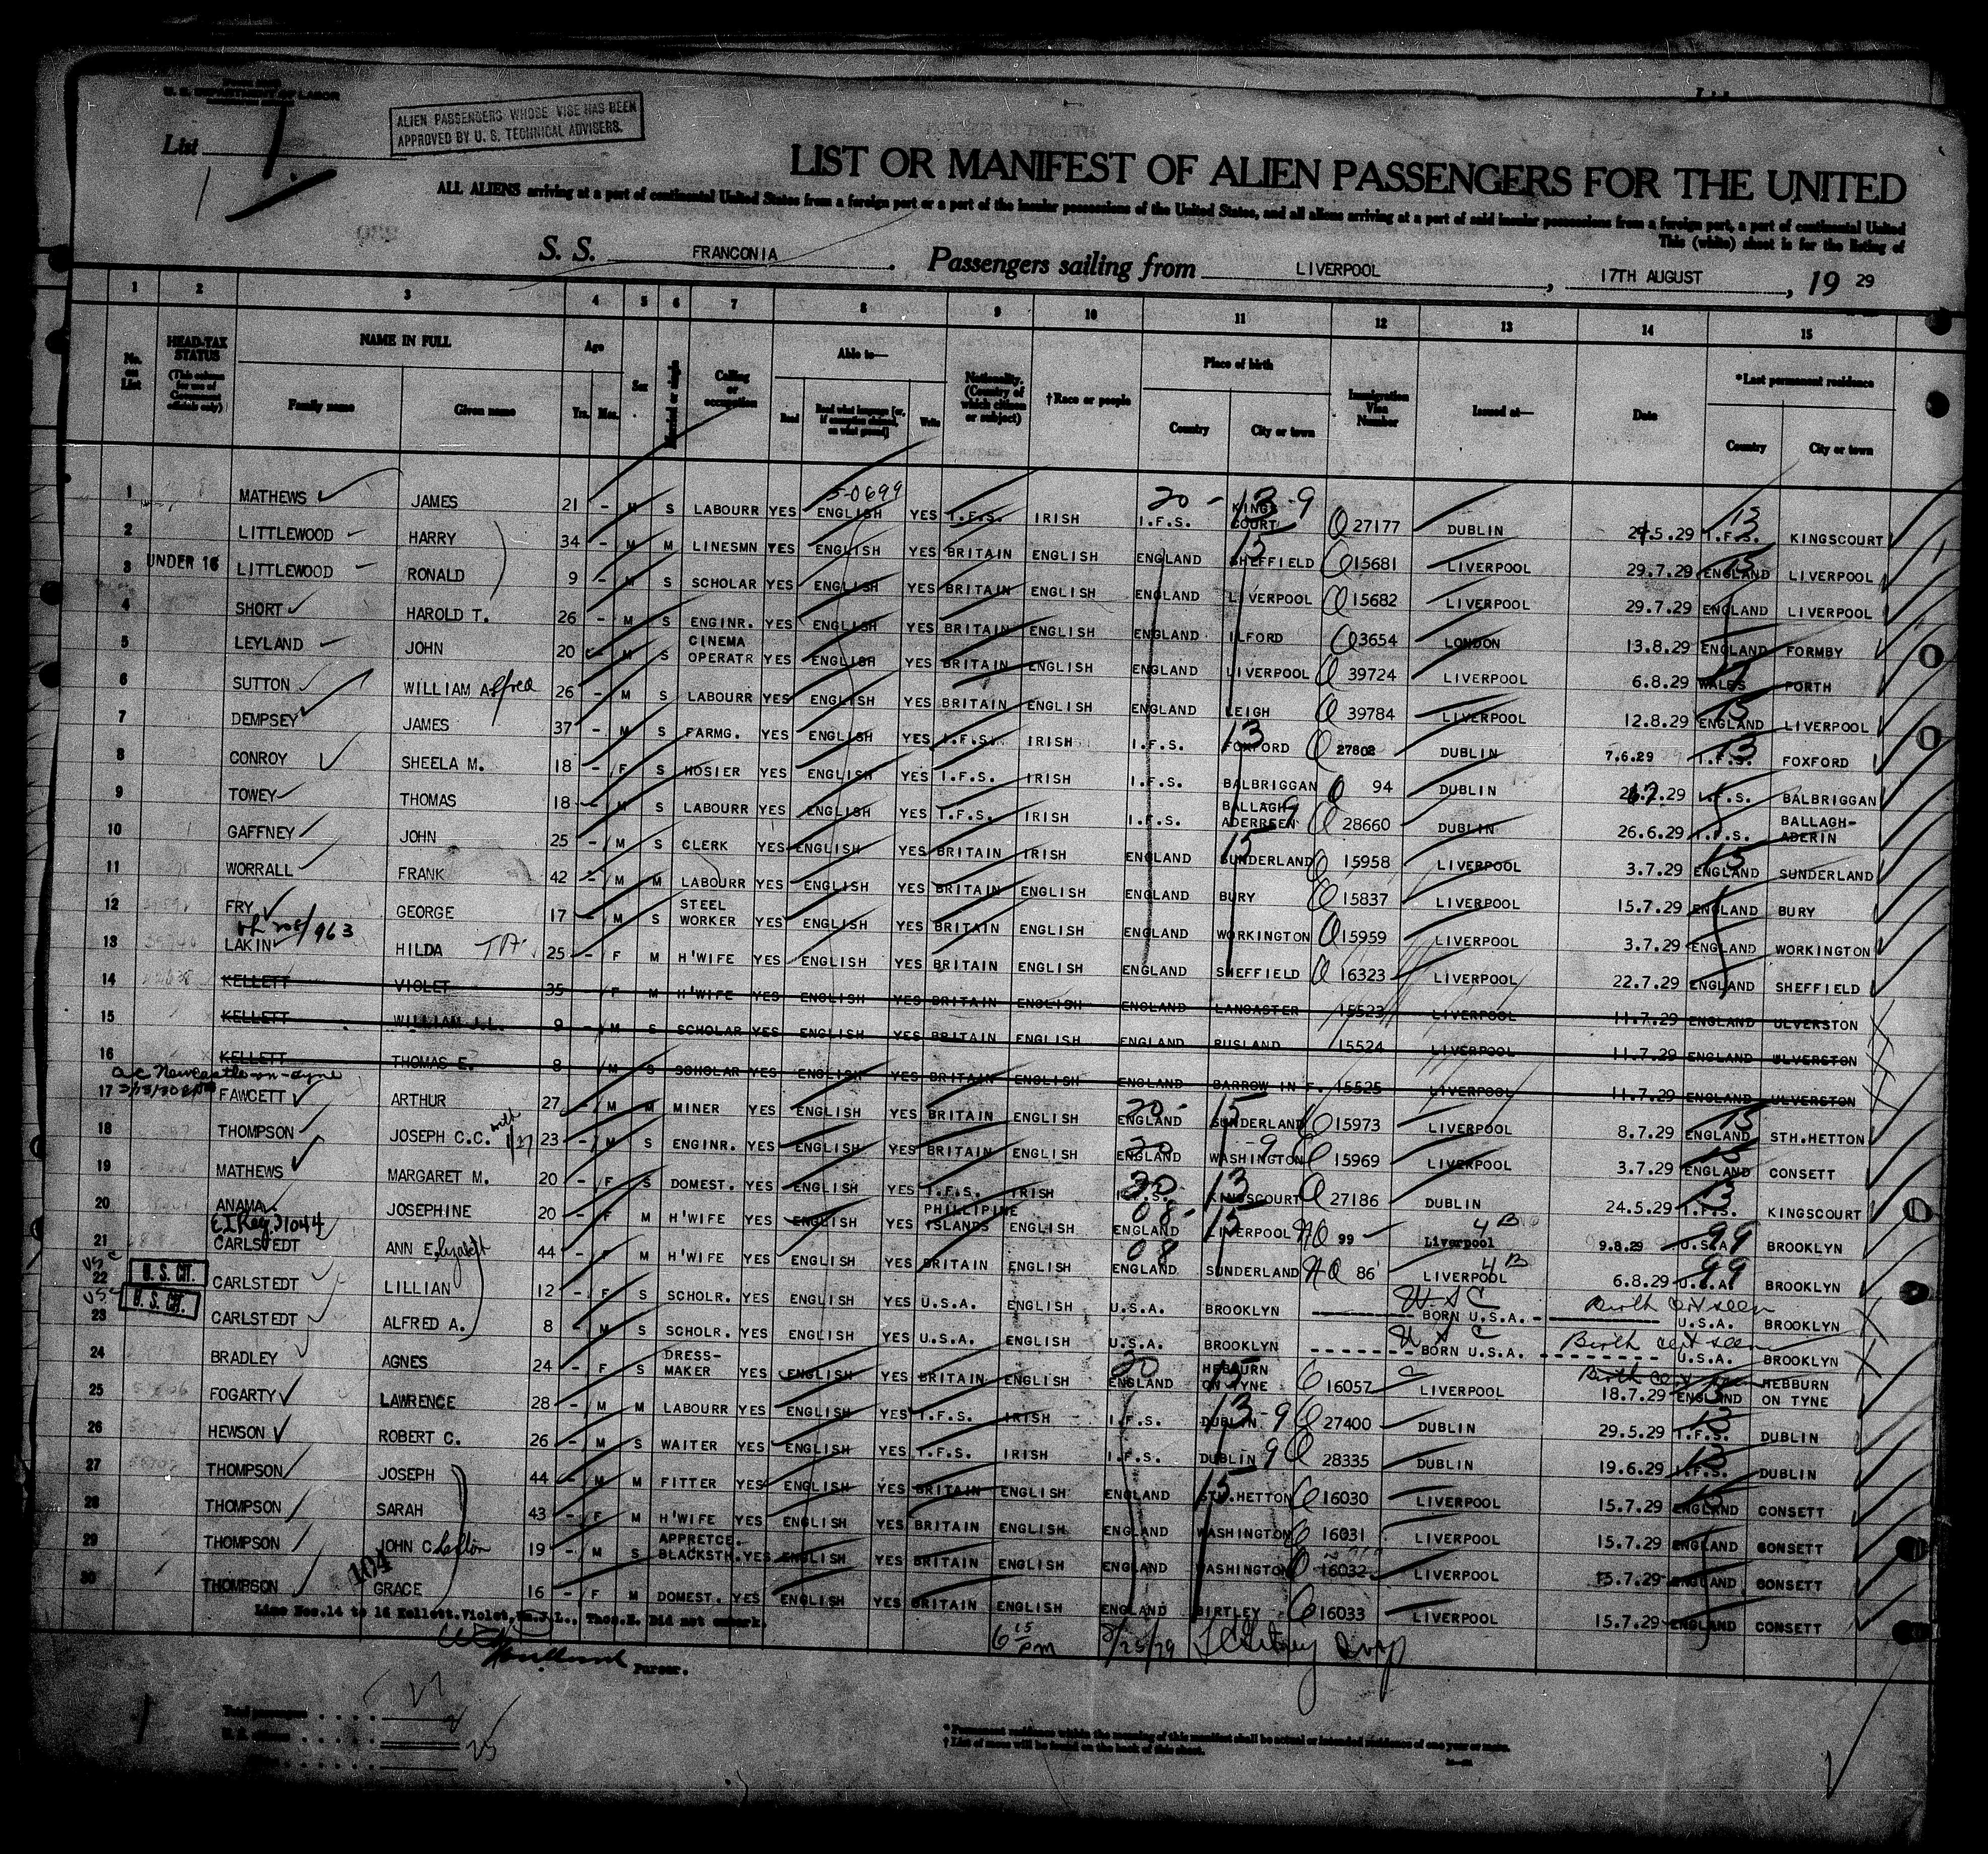 U. S. DEPARTMENT OF LABOR
List 1.
ALIEN PASSENGERS WHOSE VISE HAS BEEN
APPROVED BY U. S. TECHNICAL ADVISERS.
LIST OR MANIFEST OF ALIEN PASSENGERS FOR THE UNITED
ALL ALIENS arriving at a port of continental United States from a foreign port or a port of the insular possessions of the United States, and all aliens arriving at a port of said insular possessions from a foreign port, a port of continental United
This (white) sheet is for the listing of
S. S. FRANCONIA Passengers sailing from LIVERPOOL, 17TH AUGUST, 19 29
1 2 3 4 5 6 7 8 9 10 11 12 13 14 15
No. on List
HEAD-TAX STATUS (This column for use of Government officials only)
NAME IN FULL Family name Given name
Age Yrs. Mos.
Sex
Married or single
Calling or occupation
Able to— Read Read what language [or, if exemption claimed, on what ground] Write
Nationality. (Country of which citizen or subject)
†Race or people
Place of birth Country City or town
Immigration Visa Number
Issued at—
Date
*Last permanent residence Country City or town
5-0699 20 - 13 -9
1 MATHEWS JAMES 21 - M S LABOURR YES ENGLISH YES I.F.S. IRISH I.F.S. KINGS COURT 27177 DUBLIN 24.5.29 I.F.S. KINGSCOURT
2 LITTLEWOOD HARRY 34 - M M LINESMN YES ENGLISH YES BRITAIN ENGLISH ENGLAND SHEFFIELD 15681 LIVERPOOL 29.7.29 ENGLAND LIVERPOOL
3 UNDER 16 LITTLEWOOD RONALD 9 - M S SCHOLAR YES ENGLISH YES BRITAIN ENGLISH ENGLAND LIVERPOOL 15682 LIVERPOOL 29.7.29 ENGLAND LIVERPOOL
4 SHORT HAROLD T. 26 - M S ENGINR. YES ENGLISH YES BRITAIN ENGLISH ENGLAND ILFORD 3654 LONDON 13.8.29 ENGLAND FORMBY
5 LEYLAND JOHN 20 - M S CINEMA OPERATR YES ENGLISH YES BRITAIN ENGLISH ENGLAND LIVERPOOL 39724 LIVERPOOL 6.8.29 WALES PORTH
6 SUTTON WILLIAM Alfred 26 - M S LABOURR YES ENGLISH YES BRITAIN ENGLISH ENGLAND LEIGH 39784 LIVERPOOL 12.8.29 ENGLAND LIVERPOOL
7 DEMPSEY JAMES 37 - M S FARMG. YES ENGLISH YES I.F.S. IRISH I.F.S. FOXFORD 27802 DUBLIN 7.6.29 I.F.S. FOXFORD
8 CONROY SHEELA M. 18 - F S HOSIER YES ENGLISH YES I.F.S. IRISH I.F.S. BALBRIGGAN 94 DUBLIN .7.29 I.F.S. BALBRIGGAN
9 TOWEY THOMAS 18 - M S LABOURR YES ENGLISH YES I.F.S. IRISH I.F.S. BALLAGH ADERREEN 28660 DUBLIN 26.6.29 I.F.S. BALLAGH-ADERIN
10 GAFFNEY JOHN 25 - M S CLERK YES ENGLISH YES BRITAIN IRISH ENGLAND SUNDERLAND 15958 LIVERPOOL 3.7.29 ENGLAND SUNDERLAND
11 WORRALL FRANK 42 - M M LABOURR YES ENGLISH YES BRITAIN ENGLISH ENGLAND BURY 15837 LIVERPOOL 15.7.29 ENGLAND BURY
12 FRY GEORGE 17 - M S STEEL WORKER YES ENGLISH YES BRITAIN ENGLISH ENGLAND WORKINGTON 15959 LIVERPOOL 3.7.29 ENGLAND WORKINGTON
13 LAKIN HILDA 25 - F M H'WIFE YES ENGLISH YES BRITAIN ENGLISH ENGLAND SHEFFIELD 16323 LIVERPOOL 22.7.29 ENGLAND SHEFFIELD
14 KELLETT VIOLET 35 - F M H'WIFE YES ENGLISH YES BRITAIN ENGLISH ENGLAND LANCASTER 15523 LIVERPOOL 11.7.29 ENGLAND ULVERSTON
15 KELLETT WILLIAM J.L. 9 - M S SCHOLAR YES ENGLISH YES BRITAIN ENGLISH ENGLAND RUSLAND 15524 LIVERPOOL 11.7.29 ENGLAND ULVERSTON
16 KELLETT THOMAS E. 8 - M S SCHOLAR YES ENGLISH YES BRITAIN ENGLISH ENGLAND BARROW IN F. 15525 LIVERPOOL 11.7.29 ENGLAND ULVERSTON
a.c Newcastle-on-Tyne
17 FAWCETT ARTHUR 27 - M M MINER YES ENGLISH YES BRITAIN ENGLISH ENGLAND SUNDERLAND 15973 LIVERPOOL 8.7.29 ENGLAND STH.HETTON
18 THOMPSON JOSEPH C.C. 23 - M S ENGINR. YES ENGLISH YES BRITAIN ENGLISH ENGLAND WASHINGTON 15969 LIVERPOOL 3.7.29 ENGLAND CONSETT
19 MATHEWS MARGARET M. 20 - F S DOMEST. YES ENGLISH YES I.F.S. IRISH I.F.S. KINGSCOURT 27186 DUBLIN 24.5.29 I.F.S. KINGSCOURT
20 ANAMA JOSEPHINE 20 - F M H'WIFE YES ENGLISH YES PHILLIPINE ISLANDS ENGLISH ENGLAND LIVERPOOL 99 Liverpool 9.8.29 U.S.A. BROOKLYN
21 CARLSTEDT ANN Elizabeth 44 - F M H'WIFE YES ENGLISH YES BRITAIN ENGLISH ENGLAND SUNDERLAND 86 LIVERPOOL 6.8.29 U.S.A. BROOKLYN
22 U. S. CIT. CARLSTEDT LILLIAN 12 - F S SCHOLR. YES ENGLISH YES U.S.A. ENGLISH U.S.A. BROOKLYN BORN U.S.A. Birth cert seen U.S.A. BROOKLYN
23 U. S. CIT. CARLSTEDT ALFRED A. 8 - M S SCHOLR. YES ENGLISH YES U.S.A. ENGLISH U.S.A. BROOKLYN BORN U.S.A. Birth cert seen U.S.A. BROOKLYN
24 BRADLEY AGNES 24 - F S DRESS-MAKER YES ENGLISH YES BRITAIN ENGLISH ENGLAND HEBBURN ON TYNE 16057 LIVERPOOL 18.7.29 ENGLAND HEBBURN ON TYNE
25 FOGARTY LAWRENCE 28 - M M LABOURR YES ENGLISH YES I.F.S. IRISH I.F.S. DUBLIN 27400 DUBLIN 29.5.29 I.F.S. DUBLIN
26 HEWSON ROBERT C. 26 - M S WAITER YES ENGLISH YES I.F.S. IRISH I.F.S. DUBLIN 28335 DUBLIN 19.6.29 I.F.S. DUBLIN
27 THOMPSON JOSEPH 44 - M M FITTER YES ENGLISH YES BRITAIN ENGLISH ENGLAND STH.HETTON 16030 LIVERPOOL 15.7.29 ENGLAND CONSETT
28 THOMPSON SARAH 43 - F M H'WIFE YES ENGLISH YES BRITAIN ENGLISH ENGLAND WASHINGTON 16031 LIVERPOOL 15.7.29 ENGLAND CONSETT
29 THOMPSON JOHN Clefton 19 - M S APPRETCE. BLACKSTH. YES ENGLISH YES BRITAIN ENGLISH ENGLAND WASHINGTON 16032 LIVERPOOL 15.7.29 ENGLAND CONSETT
104
30 THOMPSON GRACE 16 - F M DOMEST. YES ENGLISH YES BRITAIN ENGLISH ENGLAND BIRTLEY 16033 LIVERPOOL 15.7.29 ENGLAND CONSETT
Line Nos.14 to 16 Kellett.Violet, Wm.J.L., Thos.E. Did not embark.
6 15 PM 8/25/29
Purser.
Total passengers 27
U. S. citizens 2
Aliens 25
* Permanent residence within the meaning of this manifest shall be actual or intended residence of one year or more.
† List of races will be found on the back of this sheet.